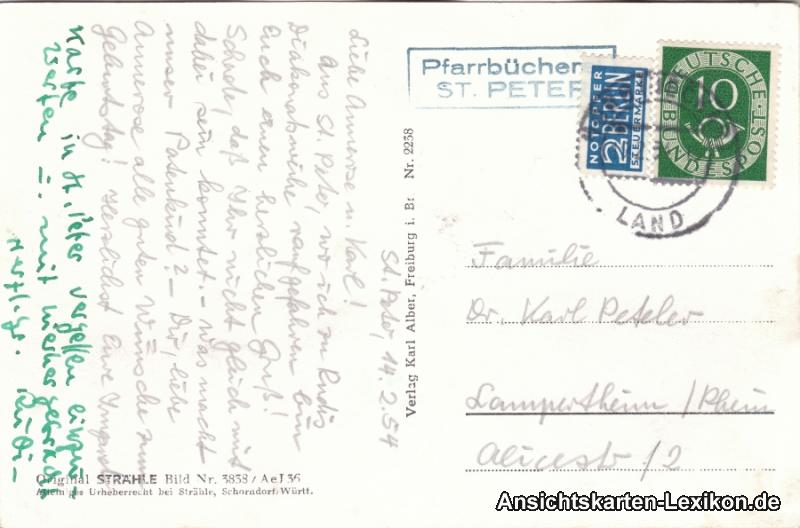 St. Peter, 14.2.54
Liebe Annerose u. Karl!
Aus St. Peter, wo ich zu Rudis
Diakonatsweihe raufgefahren bin
Euch einen herzlichen Gruß!
Schade, daß Ihr nicht gleich mit
dabei sein konntet. - Was macht
unser Patenkind? - Dir, liebe
Annerose alle guten Wünsche zum
Geburtstag! Herzlichst Eure Irmgard
Karte in St. Peter vergessen einzu-
werfen u. mit hierher gebracht
Herzl. Gr. Rudi -
Verlag Karl Alber, Freiburg i. Br. Nr. 2238
Pfarrbücher
ST. PETER
NOTOPFER
2 BERLIN
STEUERMARKE
DEUTSCHE
10
BUNDESPOST
LAND
Familie
Dr. Karl Peteler
Lampertheim / Rhein
Alicestr. / 2
Original STRÄHLE Bild Nr. 3838 / AeJ 36
Alleiniges Urheberrecht bei Strähle, Schorndorf/Württ.
Ansichtskarten-Lexikon.de